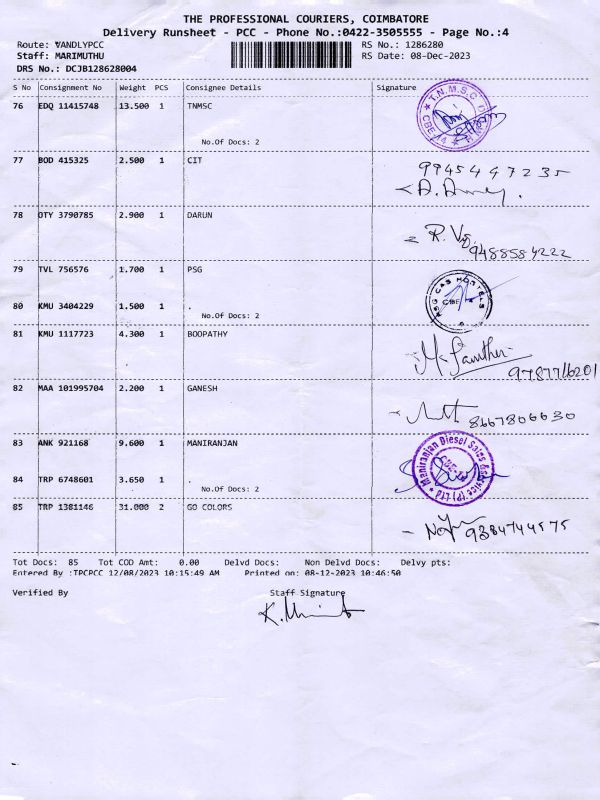 THE PROFESSIONAL COURIERS, COIMBATORE
Delivery Runsheet - PCC - Phone No.:0422-3505555 - Page No.:4
Route: VANDLYPCC RS No.: 1286280
Staff: MARIMUTHU RS Date: 08-Dec-2023
DRS No.: DCJB128628004
S No Consignment No Weight PCS Consignee Details Signature
76 EDQ 11415748 13.500 1 TNMSC
No.Of Docs: 2
77 BOD 415325 2.500 1 CIT
9945447235
78 OTY 3790785 2.900 1 DARUN
9488584222
79 TVL 756576 1.700 1 PSG
80 KMU 3404229 1.500 1 .
No.Of Docs: 2
81 KMU 1117723 4.300 1 BOOPATHY
9787716201
82 MAA 101995704 2.200 1 GANESH
8667806630
83 ANK 921168 9.600 1 MANIRANJAN
Maniranjan Diesel Sales & Service (P) Ltd
84 TRP 6748601 3.650 1 .
No.Of Docs: 2
85 TRP 1381146 31.000 2 GO COLORS
9384744575
Tot Docs: 85 Tot COD Amt: 0.00 Delvd Docs: Non Delvd Docs: Delvy pts:
Entered By :TPCPCC 12/08/2023 10:15:49 AM Printed on: 08-12-2023 10:46:50
Verified By Staff Signature